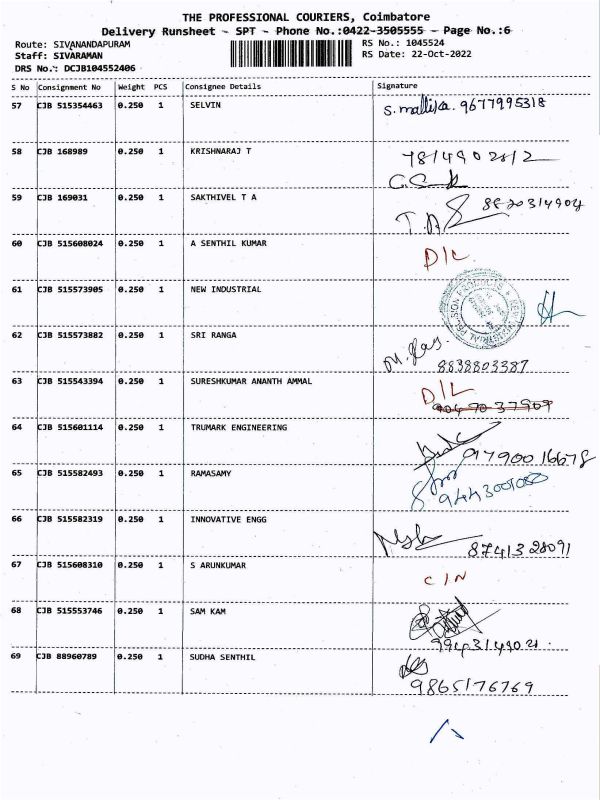 THE PROFESSIONAL COURIERS, Coimbatore
Delivery Runsheet - SPT - Phone No.:0422-3505555 - Page No.:6
Route: SIVANANDAPURAM
Staff: SIVARAMAN
DRS No.: DCJB104552406
RS No.: 1045524
RS Date: 22-Oct-2022
S No Consignment No Weight PCS Consignee Details Signature
57 CJB 515354463 0.250 1 SELVIN S. mallika. 9677995318
58 CJB 168989 0.250 1 KRISHNARAJ T 7814902812
59 CJB 169031 0.250 1 SAKTHIVEL T A 8820314904
T.A
60 CJB 515608024 0.250 1 A SENTHIL KUMAR D/L
61 CJB 515573905 0.250 1 NEW INDUSTRIAL
62 CJB 515573882 0.250 1 SRI RANGA
8838803387
63 CJB 515543394 0.250 1 SURESHKUMAR ANANTH AMMAL D/L
64 CJB 515601114 0.250 1 TRUMARK ENGINEERING
9790016678
65 CJB 515582493 0.250 1 RAMASAMY
66 CJB 515582319 0.250 1 INNOVATIVE ENGG
8741328091
67 CJB 515608310 0.250 1 S ARUNKUMAR C/N
68 CJB 515553746 0.250 1 SAM KAM
9943149021
69 CJB 88960789 0.250 1 SUDHA SENTHIL
9865176769